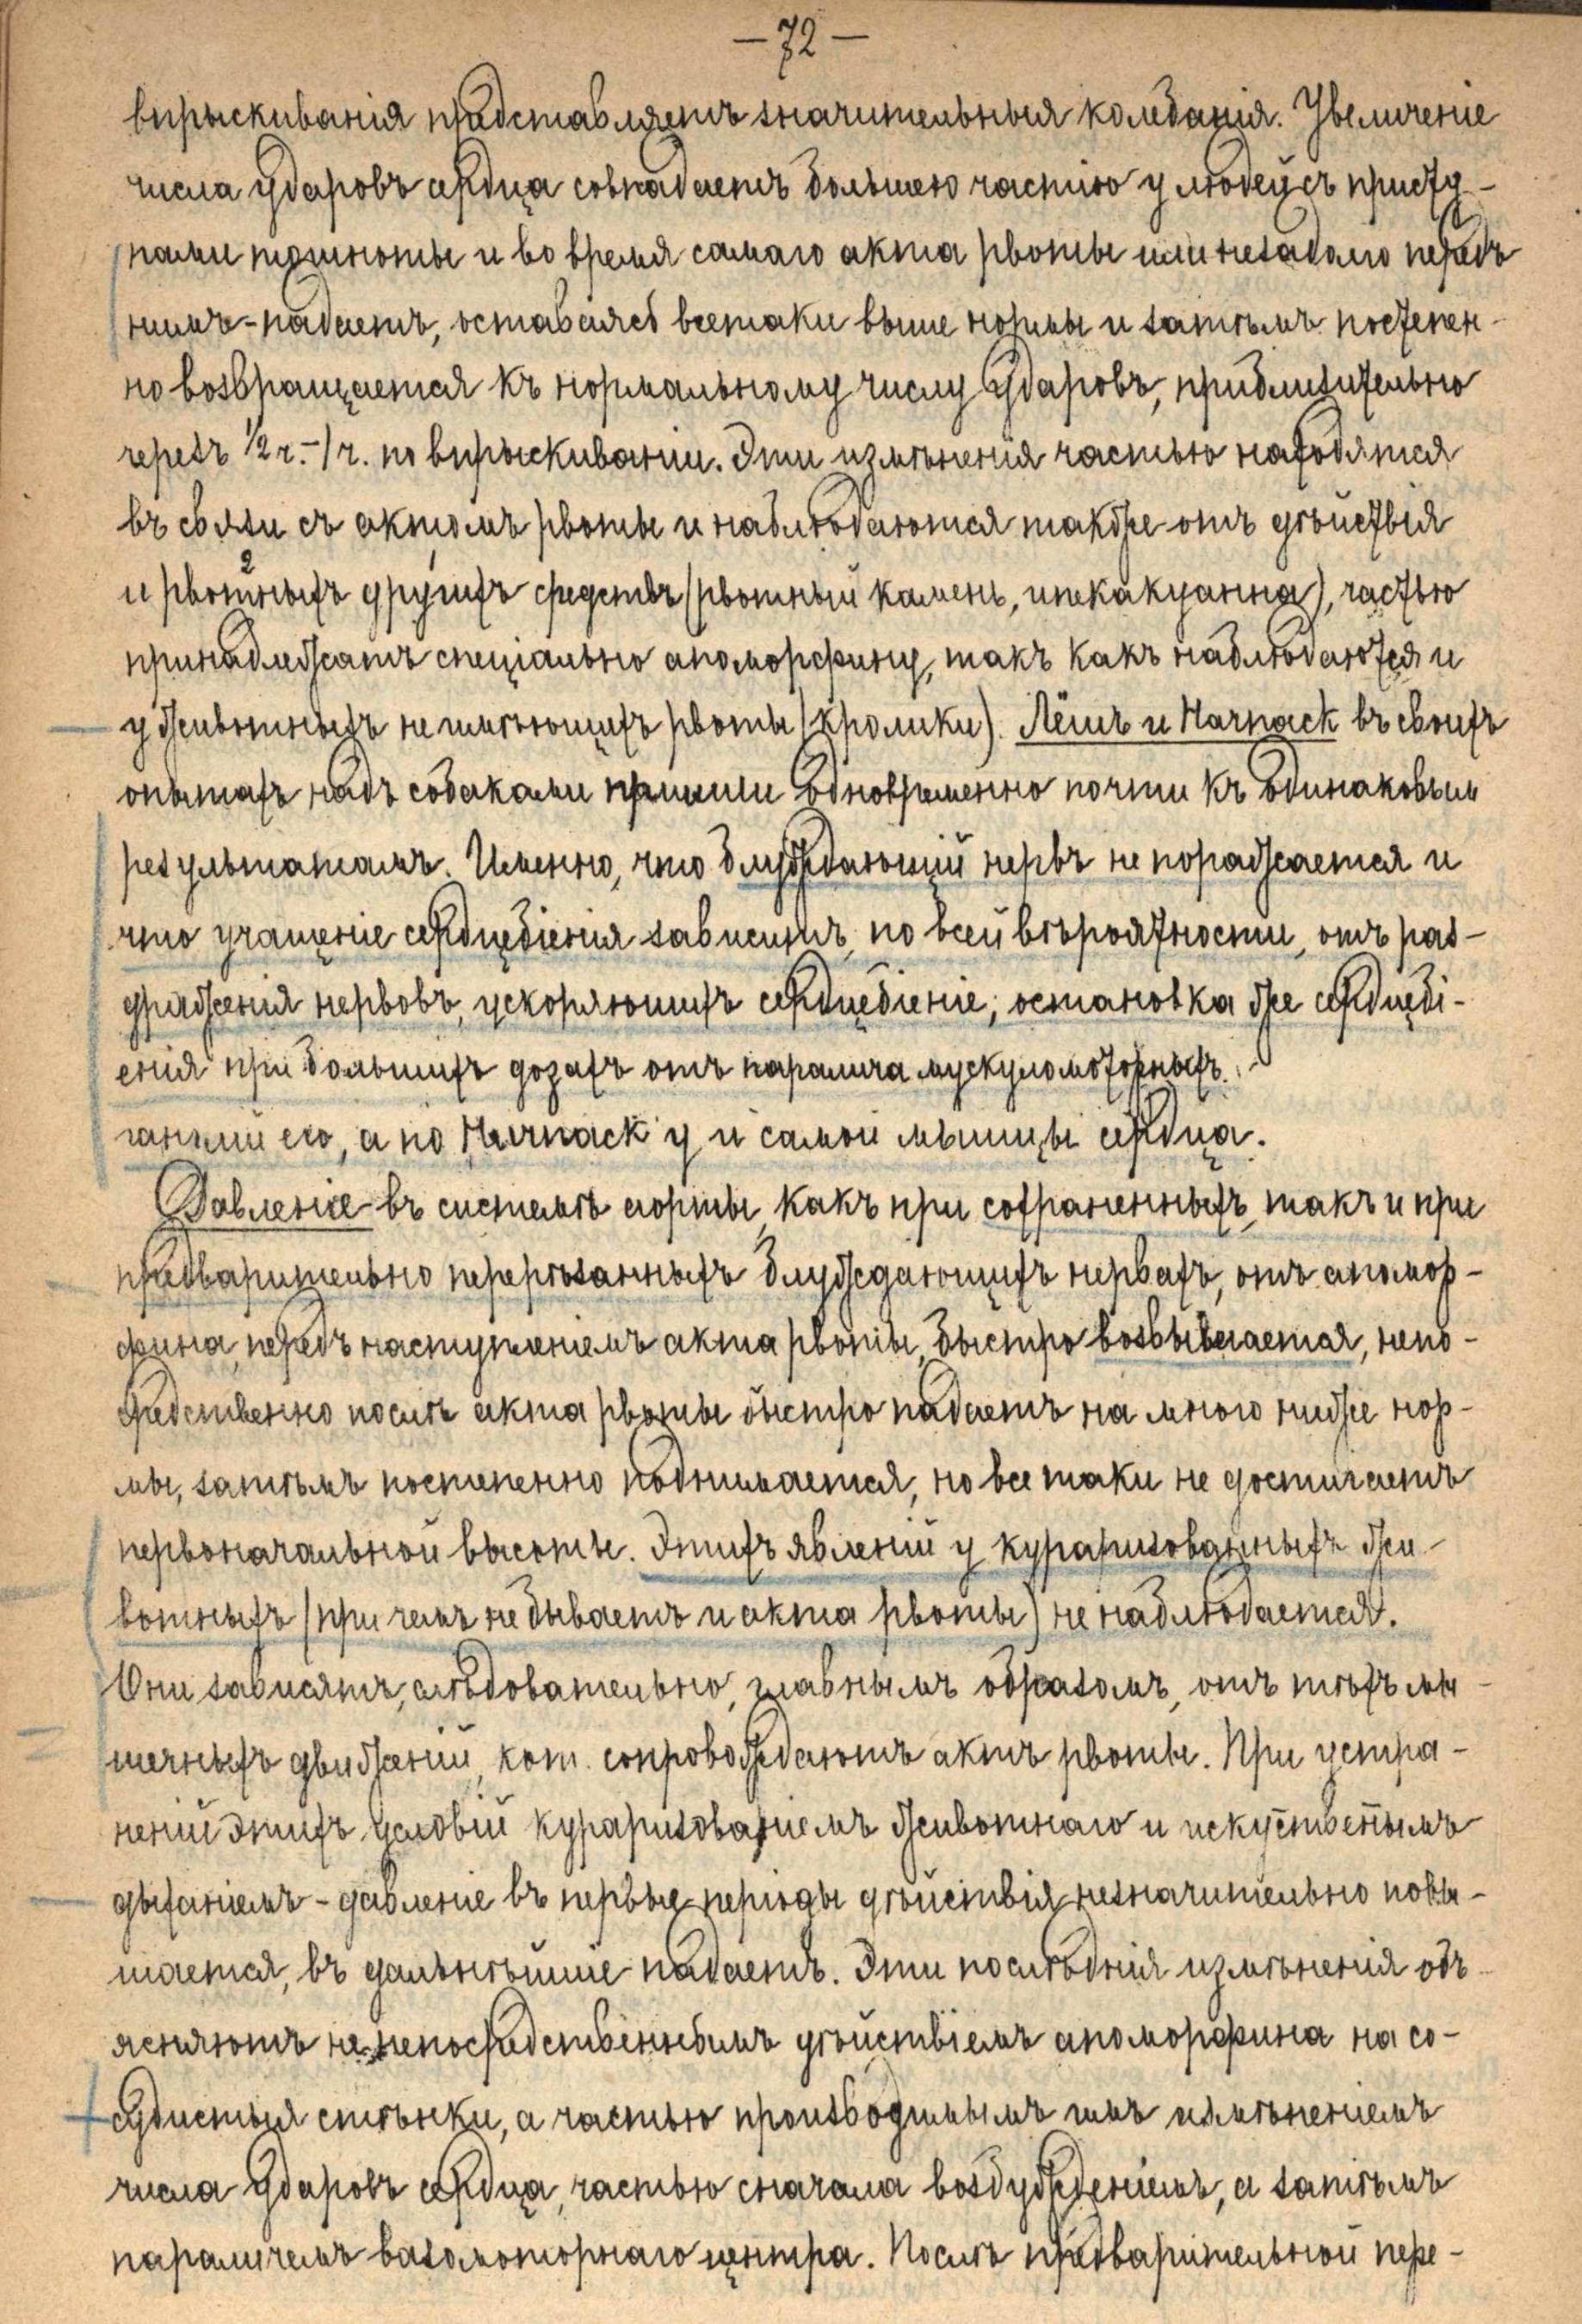 — 72 —
впрыскиванія представляетъ значительныя колебанія. Увеличеніе
числа ударовъ сердца совпадаетъ большею частію у людей съ присту-
пами тошноты и во время самаго акта рвоты или незадолго передъ
нимъ - падаетъ, оставаясь всетаки выше нормы и затѣмъ постепен-
но возвращается къ нормальному числу ударовъ, приблизительно
черезъ 1/2 ч. - 1 ч. по впрыскиваніи. Эти измѣненія частью находятся
въ связи съ актомъ рвоты и наблюдаются также отъ дѣйствія
и рвотныхъ 2 другихъ 1 средствъ (рвотный камень, ипекакуанна), частью
принадлежатъ спеціально апоморфину, такъ какъ наблюдаются и
у животныхъ не имѣющихъ рвоты (кролики). Лёшъ и Harnack въ своихъ
опытахъ надъ собаками пришли одновременно почти къ одинаковым
результатамъ. Именно, что блуждающій нервъ не поражается и
что учащеніе сердцебіенія зависитъ, по всей вѣроятности, отъ раз-
драженія нервовъ, ускоряющихъ сердцебіеніе; остановка же сердцебі-
енія при большихъ дозахъ отъ паралича мускуломоторныхъ
гангліи его, а по Harnack'у и самой мышцы сердца.
Давленіе въ системѣ аорты, какъ при сохраненныхъ, такъ и при
предварительно перерѣзанныхъ блуждающихъ нервахъ, отъ апомор-
фина, передъ наступленіемъ акта рвоты, быстро возвышается, непо-
средственно послѣ акта рвоты быстро падаетъ на много ниже нор-
мы, затѣмъ постепенно поднимается, но все таки не достигаетъ
первоначальной высоты. Этихъ явленій у кураризованныхъ жи-
вотныхъ (при чемъ не бываетъ и акта рвоты) не наблюдается.
Они зависятъ, слѣдовательно, главнымъ образомъ, отъ тѣхъ мы-
шечныхъ движеній, кот. сопровождаютъ актъ рвоты. При устра-
неніи этихъ условій кураризованіемъ животнаго и искуственымъ
дыханіемъ - давленіе въ первые періоды дѣйствія незначительно повы-
шается, въ дальнѣйшіе падаетъ. Эти послѣднія измѣненія объ-
ясняютъ не непосредственнымъ дѣйствіемъ апоморфина на со-
судистыя стѣнки, а частью производимымъ имъ измѣненіемъ
числа ударовъ сердца, частью сначала возбужденіемъ, а затѣмъ
параличемъ вазомоторнаго центра. Послѣ предварительной пере-